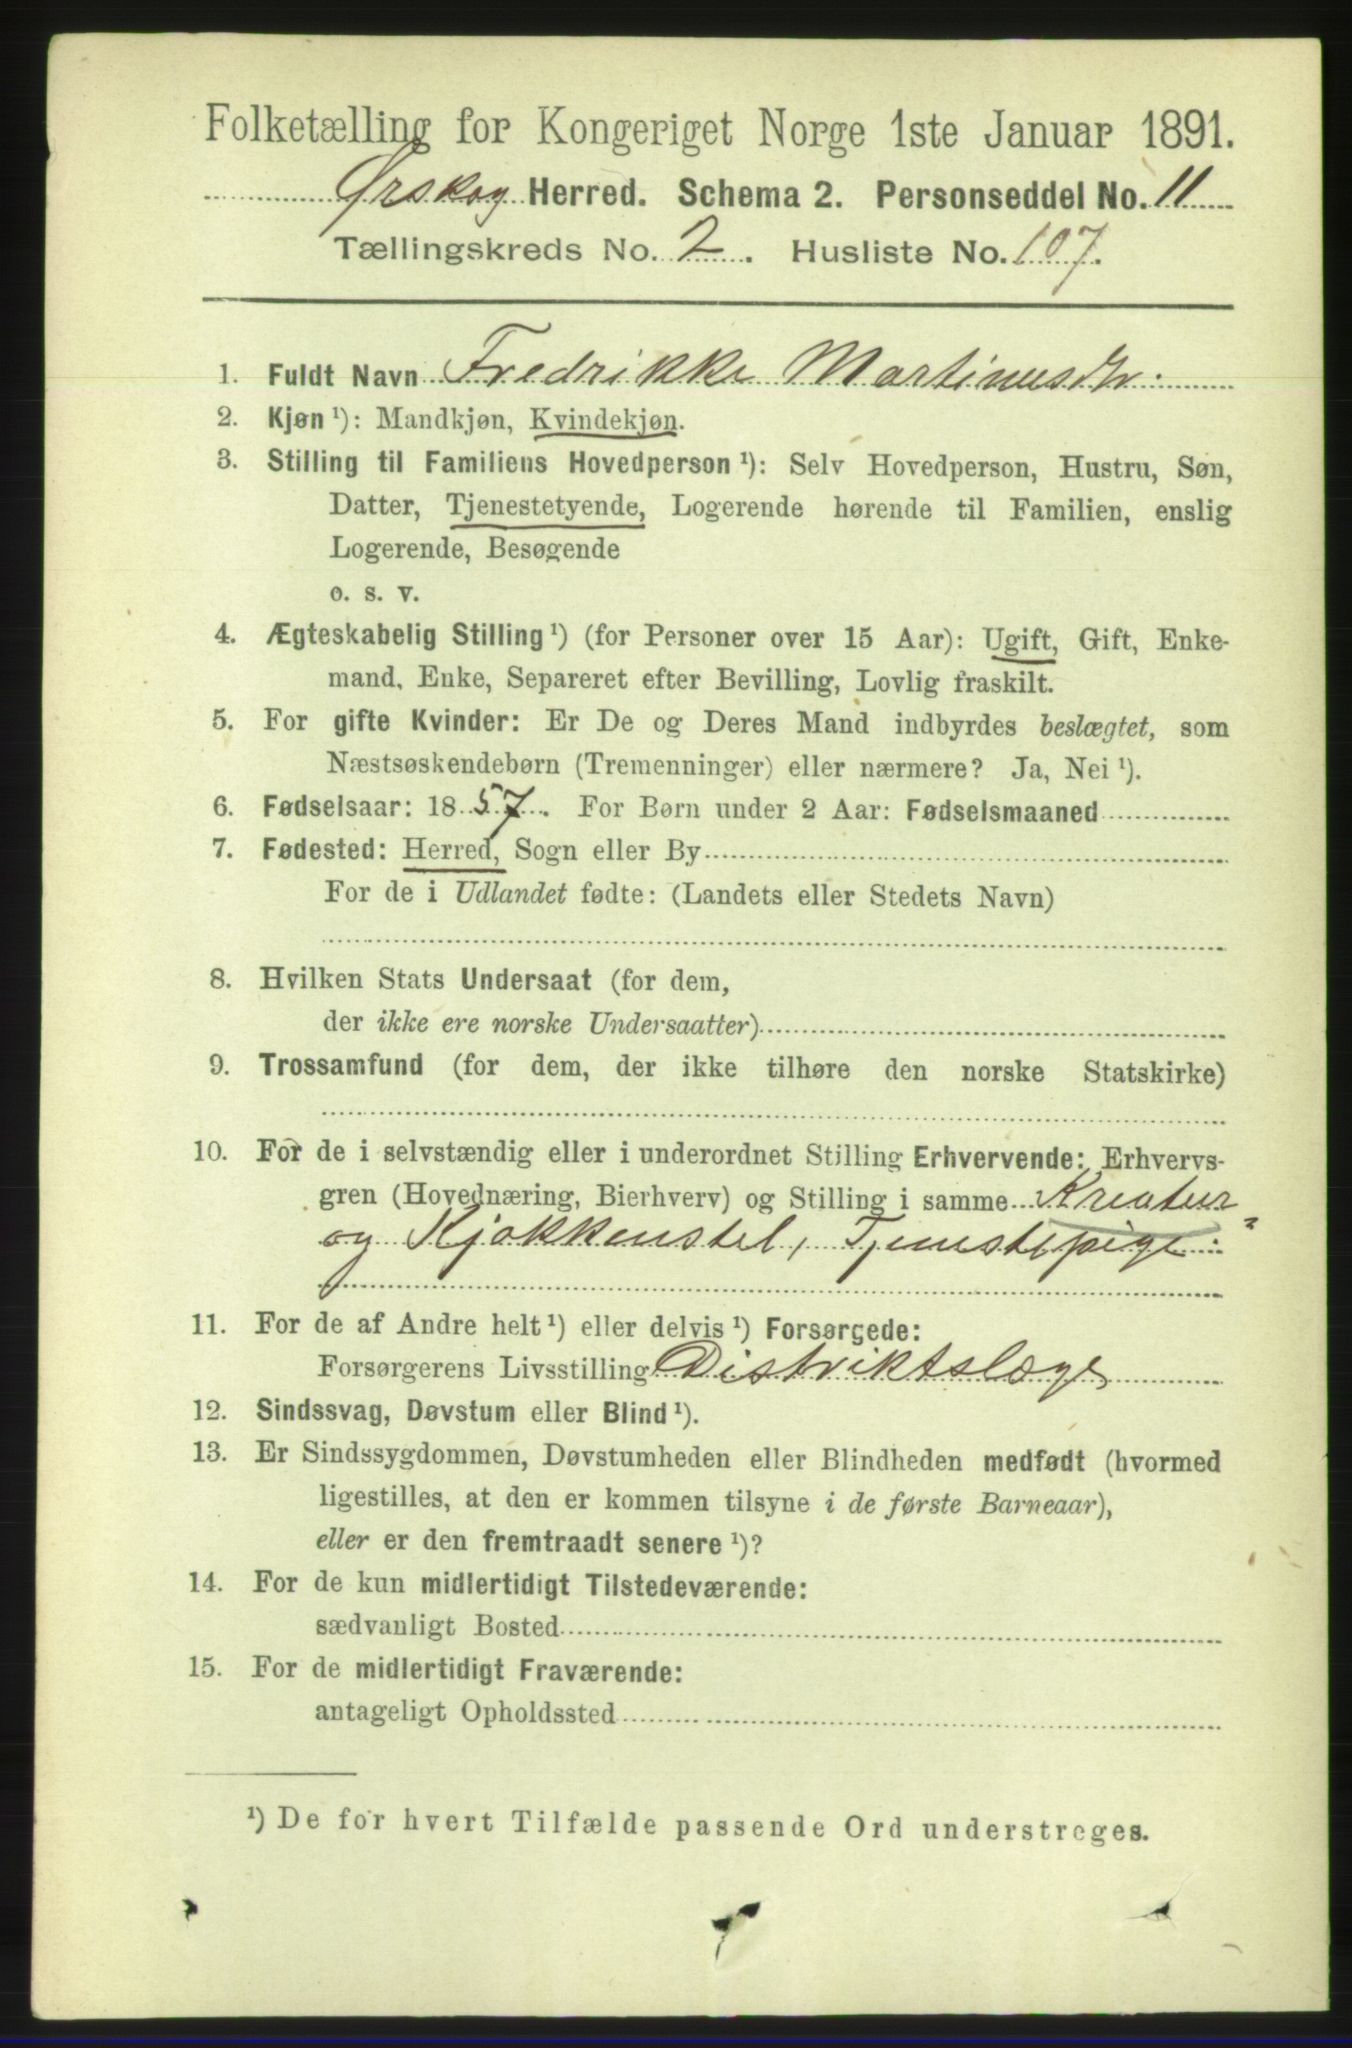 Folketælling for Kongeriget Norge 1ste Januar 1891.
Ørskog Herred. Schema 2. Personseddel No. 11
Tællingskreds No. 2. Husliste No. 107.
1. Fuldt Navn Fredrikke Martinusdtr.
2. Kjøn ¹): Mandkjøn, Kvindekjøn.
3. Stilling til Familiens Hovedperson ¹): Selv Hovedperson, Hustru, Søn,
Datter, Tjenestetyende, Logerende hørende til Familien, enslig
Logerende, Besøgende
o. s. v.
4. Ægteskabelig Stilling ¹) (for Personer over 15 Aar): Ugift, Gift, Enke-
mand, Enke, Separeret efter Bevilling, Lovlig fraskilt.
5. For gifte Kvinder: Er De og Deres Mand indbyrdes beslægtet, som
Næstsøskendebørn (Tremenninger) eller nærmere? Ja, Nei ¹).
6. Fødselsaar: 1857. For Børn under 2 Aar: Fødselsmaaned
7. Fødested: Herred, Sogn eller By
For de i Udlandet fødte: (Landets eller Stedets Navn)
8. Hvilken Stats Undersaat (for dem,
der ikke ere norske Undersaatter)
9. Trossamfund (for dem, der ikke tilhøre den norske Statskirke)
10. For de i selvstændig eller i underordnet Stilling Erhvervende: Erhvervs-
gren (Hovednæring, Bierhverv) og Stilling i samme Kreatur
og Kjøkkenstel, Tjenestepige.
11. For de af Andre helt ¹) eller delvis ¹) Forsørgede:
Forsørgerens Livsstilling Distriktslæge
12. Sindssvag, Døvstum eller Blind ¹).
13. Er Sindssygdommen, Døvstumheden eller Blindheden medfødt (hvormed
ligestilles, at den er kommen tilsyne i de første Barneaar),
eller er den fremtraadt senere ¹)?
14. For de kun midlertidigt Tilstedeværende:
sædvanligt Bosted
15. For de midlertidigt Fraværende:
antageligt Opholdssted
¹) De for hvert Tilfælde passende Ord understreges.